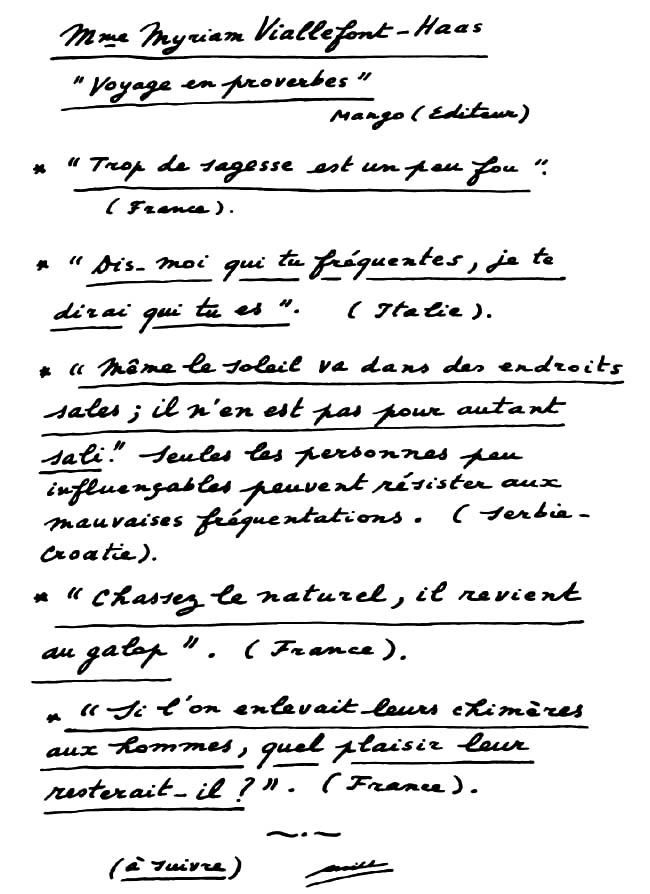 Mme Myriam Viallefont-Haas
"Voyage en proverbes"
Mango (Editeur)
* "Trop de sagesse est un peu fou".
(France).
* "Dis-moi qui tu fréquentes, je te
dirai qui tu es". (Italie).
* "Même le soleil va dans des endroits
sales; il n'en est pas pour autant
sali." Seules les personnes peu
influençables peuvent résister aux
mauvaises fréquentations. (Serbie-
Croatie).
* "Chassez le naturel, il revient
au galop". (France).
* "Si l'on enlevait leurs chimères
aux hommes, quel plaisir leur
resterait-il ?". (France).
(à suivre)